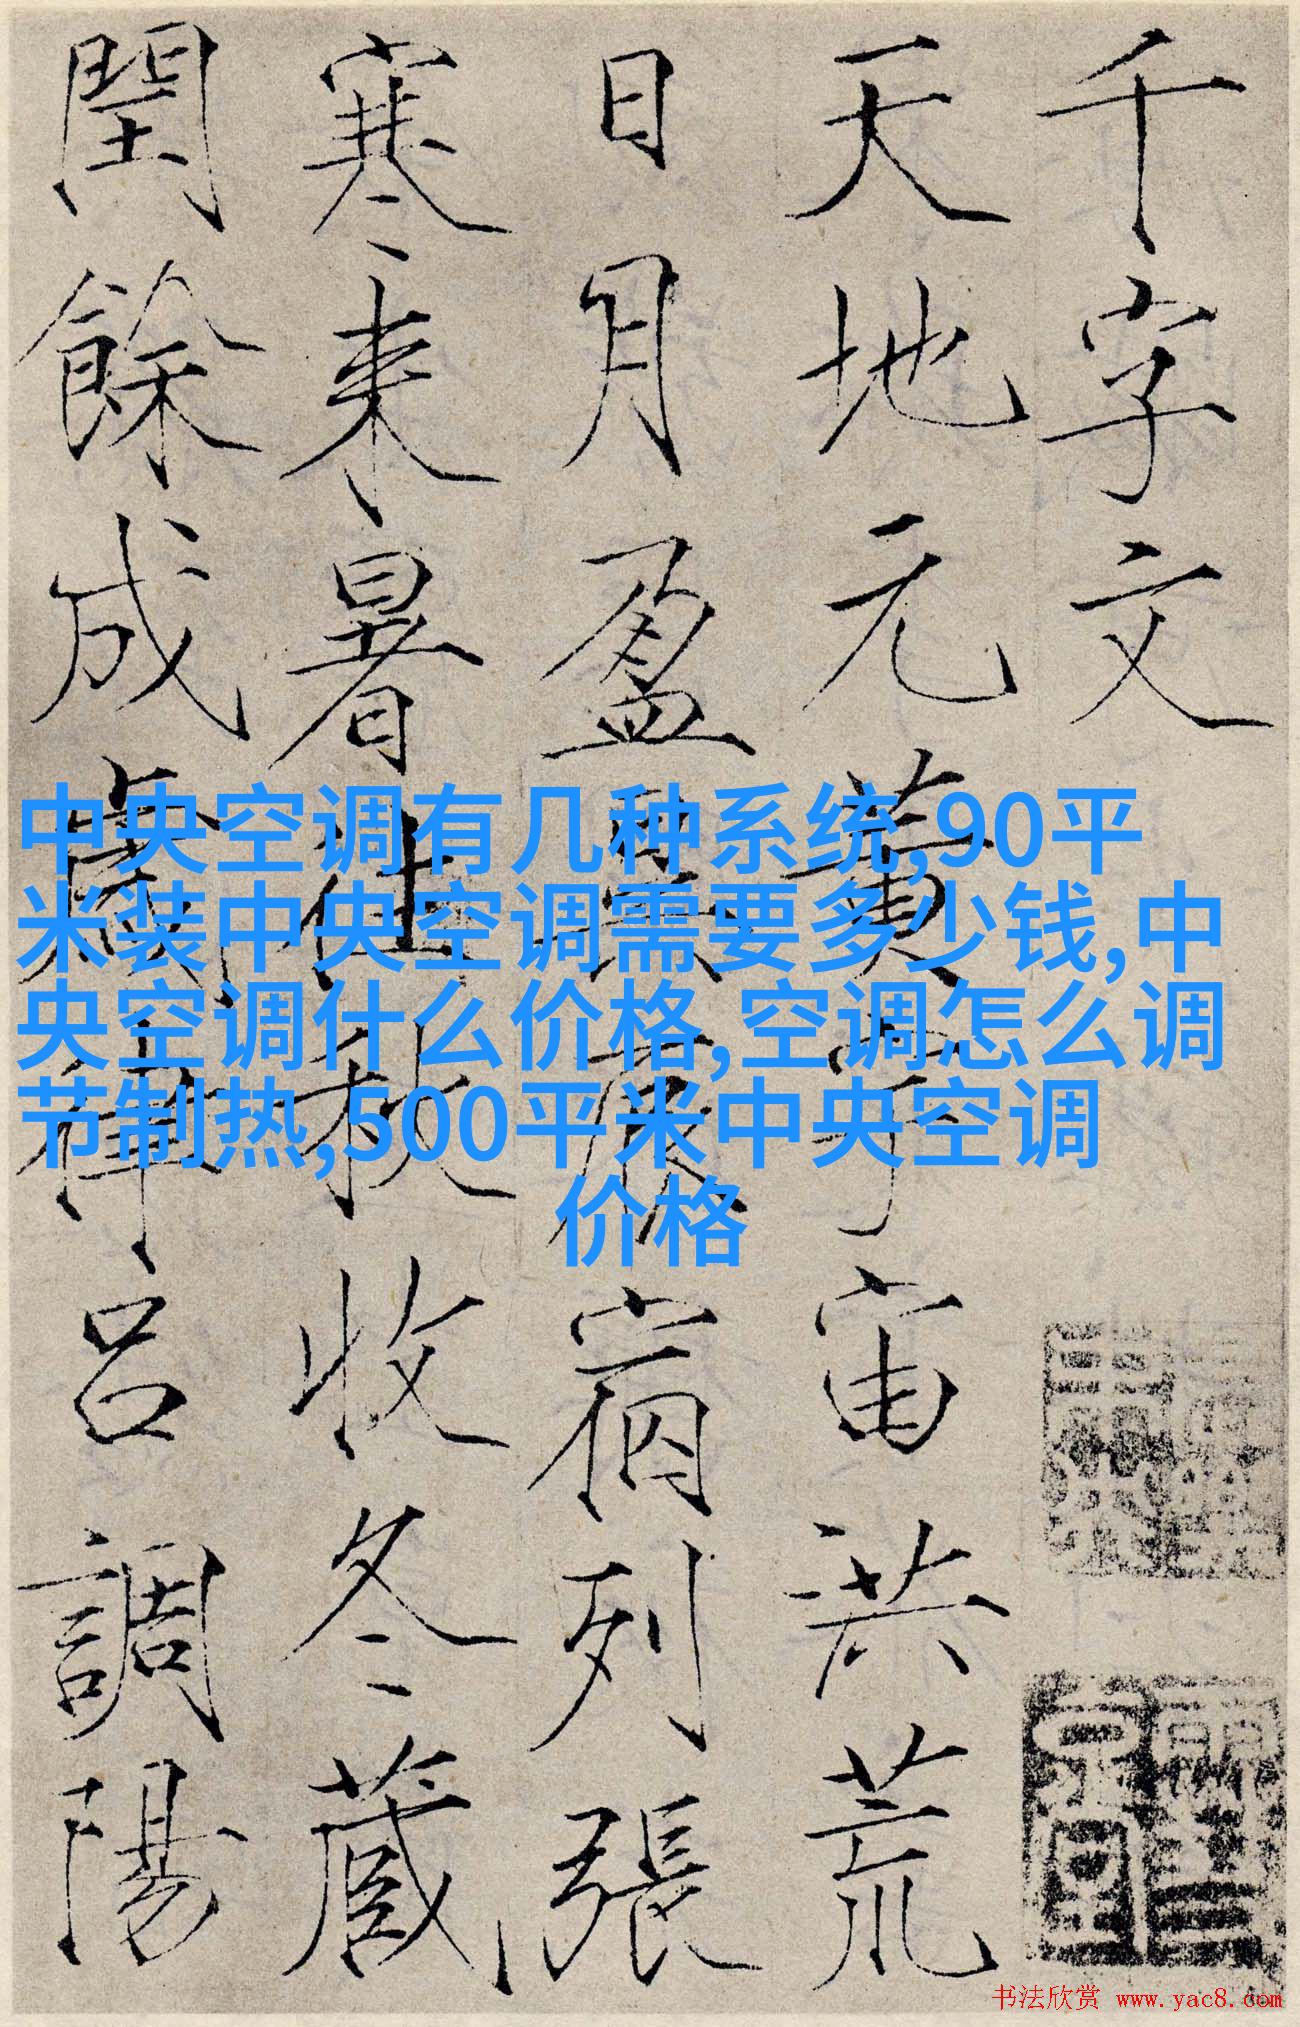 千字文
天地元黄宇宙洪荒
日月盈昃辰宿列張
寒来暑往秋收冬蔵
閏餘成歲律呂調陽
中央空调有几种系统,90平
米装中央空调需要多少钱,中
央空调什么价格,空调怎么调
节制热,500平米中央空调
价格
书法欣赏 www.yac8.com